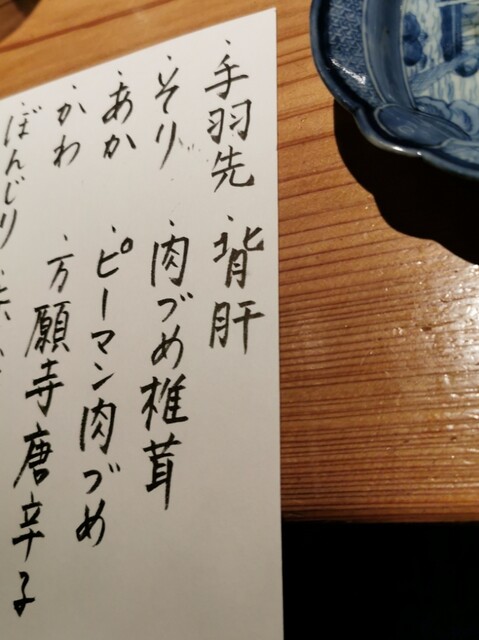 ・手羽先 ・背肝
・そり ・肉づめ椎茸
・あか ・ピーマン肉づめ
・かわ ・万願寺唐辛子
・ぼんじり